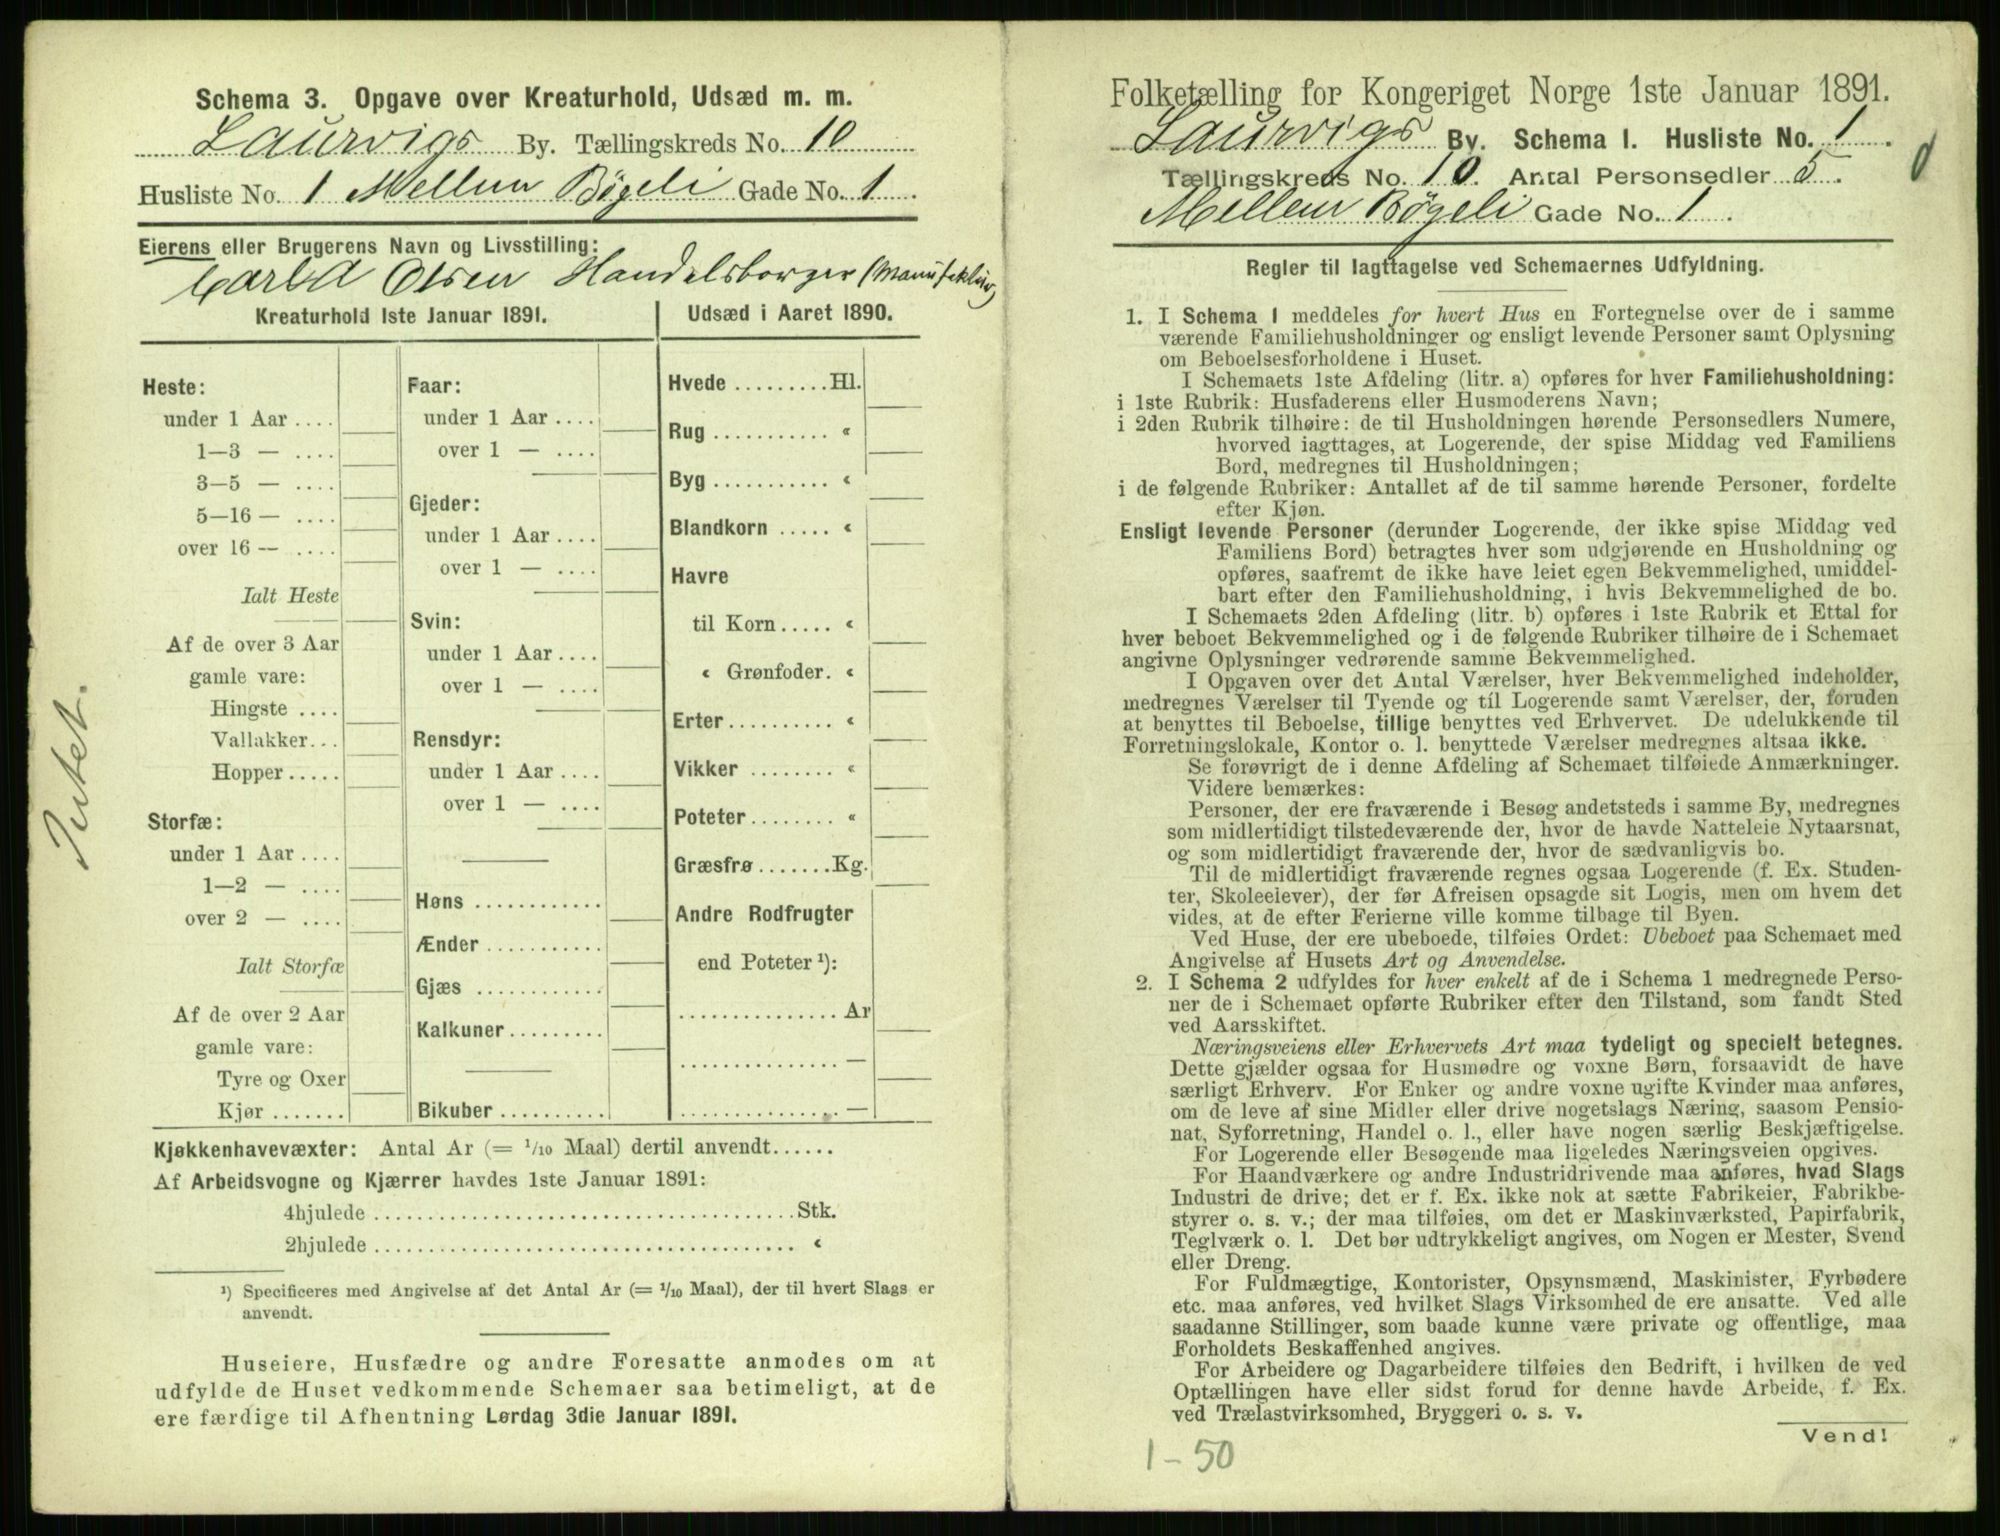 Schema 3. Opgave over Kreaturhold, Udsæd m. m.
Laurvigs By. Tællingskreds No. 10
Husliste No. 1 Mellem Bøgeli Gade No. 1
Eierens eller Brugerens Navn og Livsstilling:
Carl A Olsen Handelsborger (Manufaktur)
Kreaturhold 1ste Januar 1891.
Heste:
under 1 Aar ....
1—3 — ....
3—5 — ....
5—16 — ....
over 16 — ....
Ialt Heste
Af de over 3 Aar
gamle vare:
Hingste ....
Vallakker...
Hopper.....
Storfæ:
under 1 Aar ....
1—2 — ....
over 2 — ....
Ialt Storfæ
Af de over 2 Aar
gamle vare:
Tyre og Oxer
Kjør .......
Faar:
under 1 Aar ....
over 1 — ....
Gjeder:
under 1 Aar ....
over 1 — ....
Svin:
under 1 Aar ....
over 1 — ....
Rensdyr:
under 1 Aar ....
over 1 — ....
Høns ............
Ænder ...........
Gjæs ............
Kalkuner.........
Bikuber ..........
Udsæd i Aaret 1890.
Hvede .........Hl.
Rug ........... «
Byg ........... «
Blandkorn ..... «
Havre
til Korn ..... «
« Grønfoder. «
Erter.......... «
Vikker ........ «
Poteter........ «
Græsfrø .......Kg.
Andre Rodfrugter
end Poteter ¹):
............... Ar
............... —
............... —
Kjøkkenhavevæxter: Antal Ar (= 1/10 Maal) dertil anvendt......
Af Arbeidsvogne og Kjærrer havdes 1ste Januar 1891:
4hjulede ........................................Stk.
2hjulede ........................................ «
¹) Specificeres med Angivelse af det Antal Ar (= 1/10 Maal), der til hvert Slags er
anvendt.
Huseiere, Husfædre og andre Foresatte anmodes om at
udfylde de Huset vedkommende Schemaer saa betimeligt, at de
ere færdige til Afhentning Lørdag 3die Januar 1891.
Intet.
Folketælling for Kongeriget Norge 1ste Januar 1891.
Laurvigs By. Schema I. Husliste No. 1
Tællingskreds No. 10. Antal Personsedler 5.
Mellem Bøgeli Gade No. 1
Regler til Iagttagelse ved Schemaernes Udfyldning.
1. I Schema 1 meddeles for hvert Hus en Fortegnelse over de i samme
værende Familiehusholdninger og ensligt levende Personer samt Oplysning
om Beboelsesforholdene i Huset.
I Schemaets 1ste Afdeling (litr. a) opføres for hver Familiehusholdning:
i 1ste Rubrik: Husfaderens eller Husmoderens Navn;
i 2den Rubrik tilhøire: de til Husholdningen hørende Personsedlers Numere,
hvorved iagttages, at Logerende, der spise Middag ved Familiens
Bord, medregnes til Husholdningen;
i de følgende Rubriker: Antallet af de til samme hørende Personer, fordelte
efter Kjøn.
Ensligt levende Personer (derunder Logerende, der ikke spise Middag ved
Familiens Bord) betragtes hver som udgjørende en Husholdning og
opføres, saafremt de ikke have leiet egen Bekvemmelighed, umiddel-
bart efter den Familiehusholdning, i hvis Bekvemmelighed de bo.
I Schemaets 2den Afdeling (litr. b) opføres i 1ste Rubrik et Ettal for
hver beboet Bekvemmelighed og i de følgende Rubriker tilhøire de i Schemaet
angivne Oplysninger vedrørende samme Bekvemmelighed.
I Opgaven over det Antal Værelser, hver Bekvemmelighed indeholder,
medregnes Værelser til Tyende og til Logerende samt Værelser, der, foruden
at benyttes til Beboelse, tillige benyttes ved Erhvervet. De udelukkende til
Forretningslokale, Kontor o. l. benyttede Værelser medregnes altsaa ikke.
Se forøvrigt de i denne Afdeling af Schemaet tilføiede Anmærkninger.
Videre bemærkes:
Personer, der ere fraværende i Besøg andetsteds i samme By, medregnes
som midlertidigt tilstedeværende der, hvor de havde Natteleie Nytaarsnat,
og som midlertidigt fraværende der, hvor de sædvanligvis bo.
Til de midlertidigt fraværende regnes ogsaa Logerende (f. Ex. Studen-
ter, Skoleelever), der før Afreisen opsagde sit Logis, men om hvem det
vides, at de efter Ferierne ville komme tilbage til Byen.
Ved Huse, der ere ubeboede, tilføies Ordet: Ubeboet paa Schemaet med
Angivelse af Husets Art og Anvendelse.
2. I Schema 2 udfyldes for hver enkelt af de i Schema 1 medregnede Perso-
ner de i Schemaet opførte Rubriker efter den Tilstand, som fandt Sted
ved Aarsskiftet.
Næringsveiens eller Erhvervets Art maa tydeligt og specielt betegnes.
Dette gjælder ogsaa for Husmødre og voxne Børn, forsaavidt de have
særligt Erhverv. For Enker og andre voxne ugifte Kvinder maa anføres,
om de leve af sine Midler eller drive nogetslags Næring, saasom Pensio-
nat, Syforretning, Handel o. l., eller have nogen særlig Beskjæftigelse.
For Logerende eller Besøgende maa ligeledes Næringsveien opgives.
For Haandværkere og andre Industridrivende maa anføres, hvad Slags
Industri de drive; det er f. Ex. ikke nok at sætte Fabrikeier, Fabrikbe-
styrer o. s. v.; der maa tilføies, om det er Maskinværksted, Papirfabrik,
Teglværk o. l. Det bør udtrykkeligt angives, om Nogen er Mester, Svend
eller Dreng.
For Fuldmægtige, Kontorister, Opsynsmænd, Maskinister, Fyrbødere
etc. maa anføres, ved hvilket Slags Virksomhed de ere ansatte. Ved alle
saadanne Stillinger, som baade kunne være private og offentlige, maa
Forholdets Beskaffenhed angives.
For Arbeidere og Dagarbeidere tilføies den Bedrift, i hvilken de ved
Optællingen have eller sidst forud for denne havde Arbeide, f. Ex.
ved Trælastvirksomhed, Bryggeri o. s. v.
Vend!
1-50